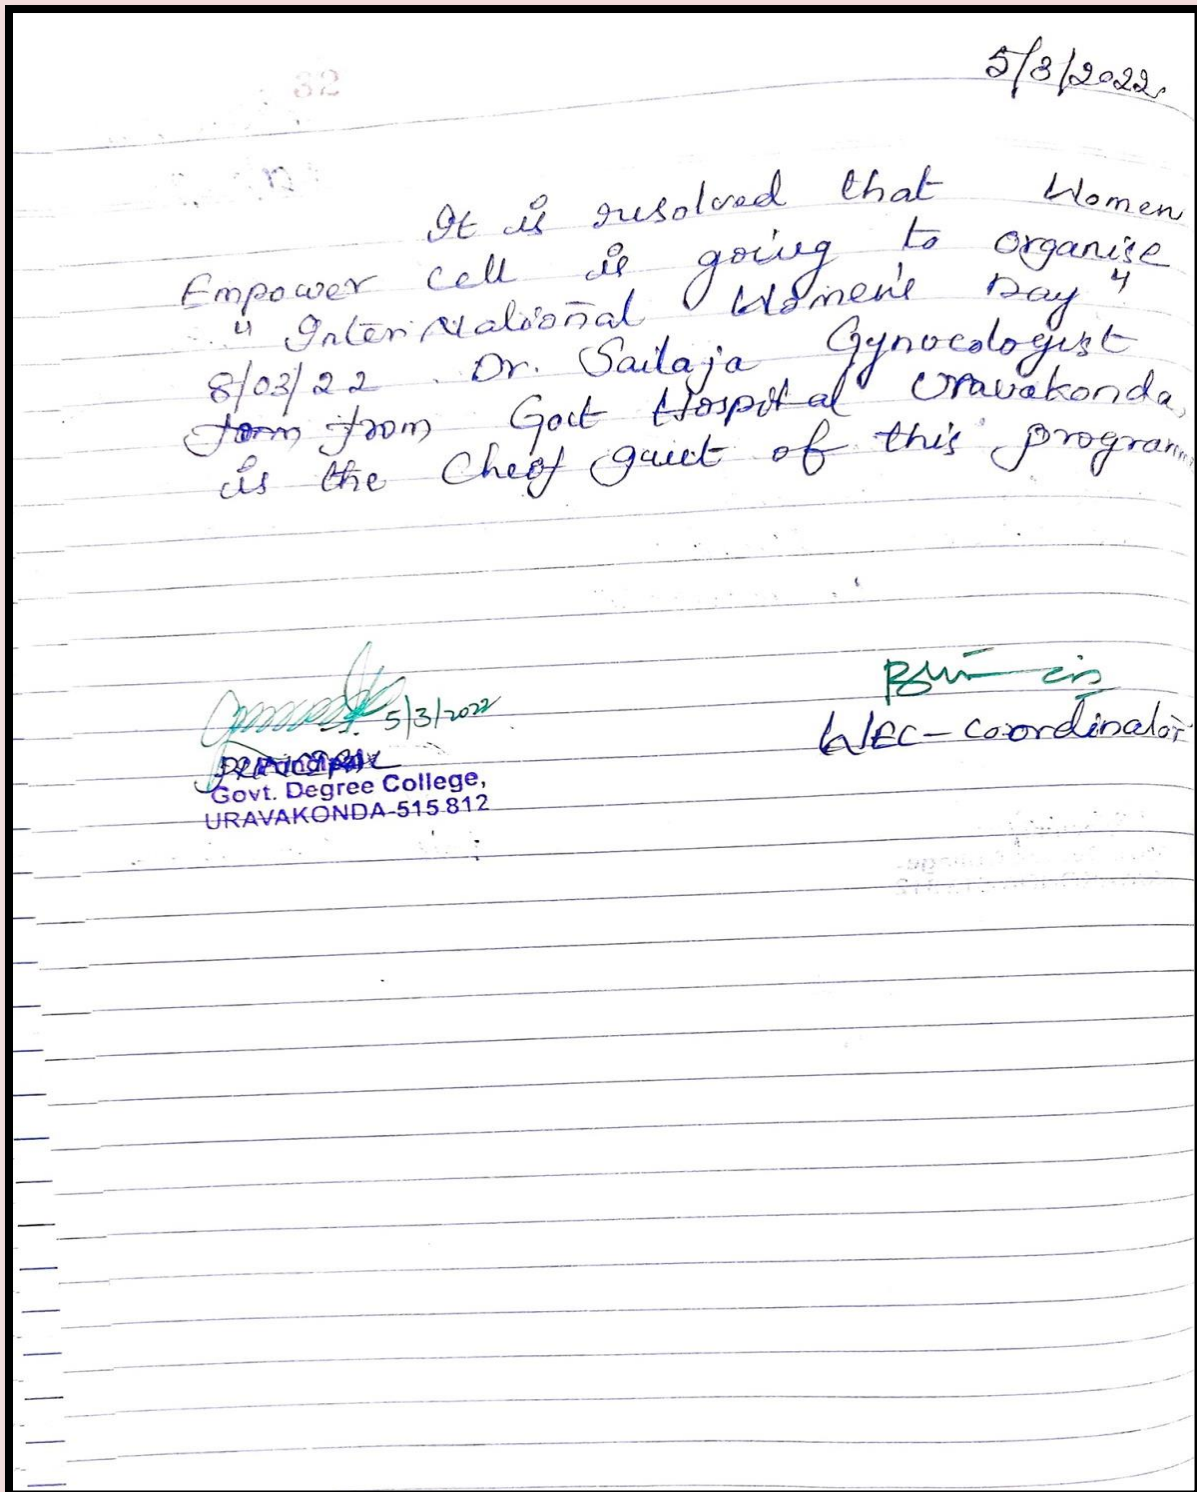 5/3/2022.
It is resolved that Women
Empower Cell is going to organise
" InterNational Women's Day "
8/03/22 . Dr. Sailaja Gynocologist
from from Govt Hospital Uravakonda,
is the Cheif guest of this program
5/3/2022
WEC - Coordinator
PRINCIPAL
Govt. Degree College,
URAVAKONDA-515 812